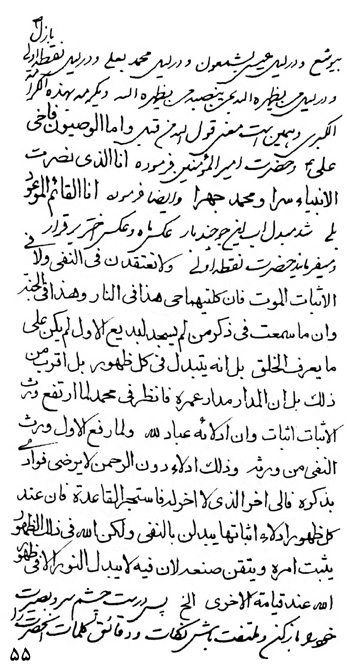 بازل
بیوشع و در لیل عیسی بشمعون و در لیل محمد بعلی و در لیل نقطه اولی
و در لیل من یظهره الله من ینصبه من یظهره الله و یکرمه بهذه الکرامة
الکبری و همین است معنی قول الله من قبل و اما الوصیون فاخی
علی و حضرت امیر المؤمنین فرموده انا الذی نصرت
الانبیاء سرا و محمد جهرا و ایضا فرموده انا القائم الموعود
بلی شد مبدل
و میفرماید حضرت نقطه اولی ولا تعتقدن فی النفی ولا فی
الاثبات الموت فان کلتیهما حی هذا فی النار وهذا فی الجنة
وان ما سمعت فی ذکر من لم یسجد لبدیع الاول لم یکن علی
ما یعرف الخلق بل انه یتبدل فی کل ظهور بل اقرب من
ذلک بل ان المدار مدار عمره فانظر فی محمد لما ارتفع ورث
الاثبات اثبات وان ادلائه عباد لله ولما رفع الاول ورث
النفی من ورثه وذلک ادلاء دون الرحمن لا یرضی فؤادی
بذکره فالی اخر الذی لا اخر له فاستجر القاعدة فان عند
کل ظهور ادلاء اثباتها یبدلن بالنفی ولکن الله فی ذلک الظهور
یثبت امره ویتقن صنعه لان فیه لا یبدل النور الا فی ظهور
الله عند قیامة الاخری الخ پس درست چشم سر و بصیرت
خود باز کن و ملتفت باش نکات و دقائق کلمات الحضرت را
۵۵